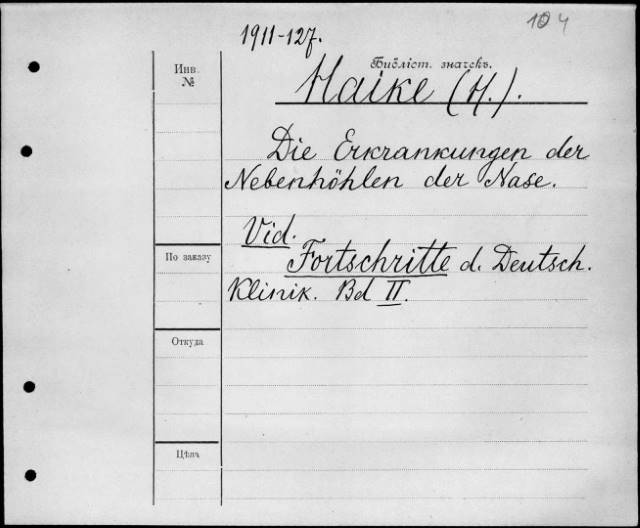 104
1911-127.
Инв. №
Библіот. значекъ.
Haike (H.).
Die Erkrankungen der
Nebenhöhlen der Nase.
Vid.
По заказу
Fortschritte d. Deutsch.
Klinik. Bd II.
Откуда
Цѣна